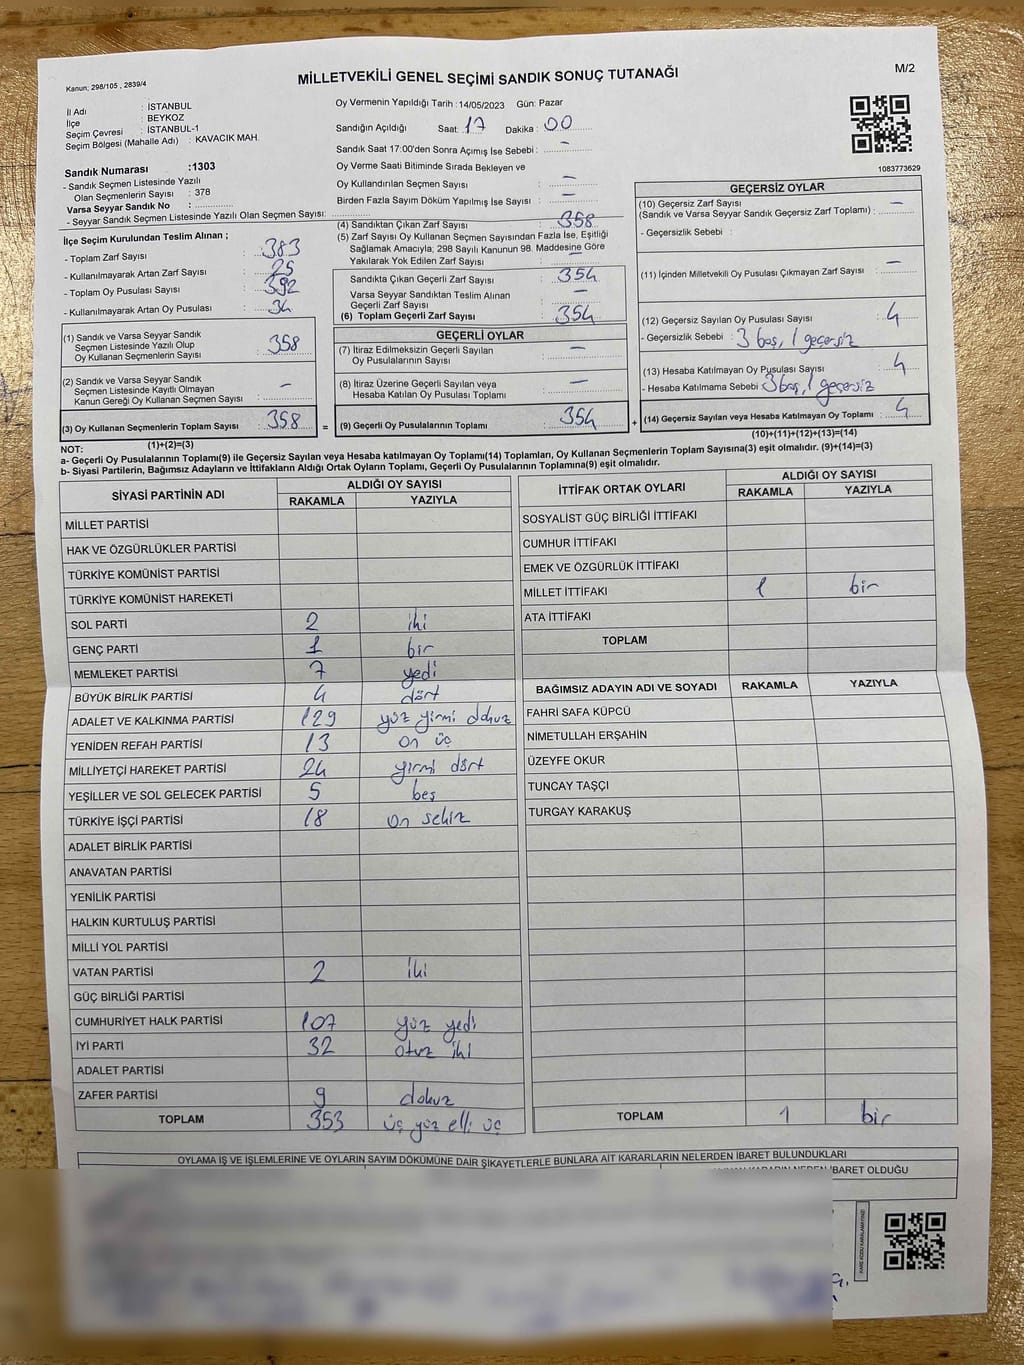 M/2
Kanun; 298/105 , 2839/4
MİLLETVEKİLİ GENEL SEÇİMİ SANDIK SONUÇ TUTANAĞI
İl Adı : İSTANBUL
İlçe : BEYKOZ
Seçim Çevresi : İSTANBUL-1
Seçim Bölgesi (Mahalle Adı) : KAVACIK MAH.
Sandık Numarası :1303
- Sandık Seçmen Listesinde Yazılı
Olan Seçmenlerin Sayısı : 378
Varsa Seyyar Sandık No :
- Seyyar Sandık Seçmen Listesinde Yazılı Olan Seçmen Sayısı:
İlçe Seçim Kurulundan Teslim Alınan ;
- Toplam Zarf Sayısı : 383
- Kullanılmayarak Artan Zarf Sayısı : 25
- Toplam Oy Pusulası Sayısı : 392
- Kullanılmayarak Artan Oy Pusulası : 34
(1) Sandık ve Varsa Seyyar Sandık
Seçmen Listesinde Yazılı Olup
Oy Kullanan Seçmenlerin Sayısı : 358
(2) Sandık ve Varsa Seyyar Sandık
Seçmen Listesinde Kayıtlı Olmayan
Kanun Gereği Oy Kullanan Seçmen Sayısı : -
(3) Oy Kullanan Seçmenlerin Toplam Sayısı : 358
(1)+(2)=(3)
Oy Vermenin Yapıldığı Tarih :14/05/2023 Gün: Pazar
Sandığın Açıldığı Saat: 17 Dakika : 00
Sandık Saat 17:00'den Sonra Açımış İse Sebebi : -
Oy Verme Saati Bitiminde Sırada Bekleyen ve
Oy Kullandırılan Seçmen Sayısı : -
Birden Fazla Sayım Döküm Yapılmış İse Sayısı : -
(4) Sandıktan Çıkan Zarf Sayısı : 358
(5) Zarf Sayısı Oy Kullanan Seçmen Sayısından Fazla İse, Eşitliği
Sağlamak Amacıyla; 298 Sayılı Kanunun 98. Maddesine Göre
Yakılarak Yok Edilen Zarf Sayısı : -
Sandıkta Çıkan Geçerli Zarf Sayısı : 354
Varsa Seyyar Sandıktan Teslim Alınan
Geçerli Zarf Sayısı : -
(6) Toplam Geçerli Zarf Sayısı : 354
GEÇERLİ OYLAR
(7) İtiraz Edilmeksizin Geçerli Sayılan
Oy Pusulasının Sayısı : -
(8) İtiraz Üzerine Geçerli Sayılan veya
Hesaba Katılan Oy Pusulası Toplamı : -
= (9) Geçerli Oy Pusulalarının Toplamı : 354
1083773629
GEÇERSİZ OYLAR
(10) Geçersiz Zarf Sayısı
(Sandık ve Varsa Seyyar Sandık Geçersiz Zarf Toplamı) : -
- Geçersizlik Sebebi :
(11) İçinden Milletvekili Oy Pusulası Çıkmayan Zarf Sayısı : -
(12) Geçersiz Sayılan Oy Pusulası Sayısı : 4
- Geçersizlik Sebebi : 3 boş, 1 geçersiz
(13) Hesaba Katılmayan Oy Pusulası Sayısı : 4
- Hesaba Katılmama Sebebi : 3 boş, 1 geçersiz
+ (14) Geçersiz Sayılan veya Hesaba Katılmayan Oy Toplamı : 4
(10)+(11)+(12)+(13)=(14)
NOT:
a- Geçerli Oy Pusulalarının Toplamı(9) ile Geçersiz Sayılan veya Hesaba katılmayan Oy Toplamı(14) Toplamları, Oy Kullanan Seçmenlerin Toplam Sayısına(3) eşit olmalıdır. (9)+(14)=(3)
b- Siyasi Partilerin, Bağımsız Adayların ve İttifakların Aldığı Ortak Oyların Toplamı, Geçerli Oy Pusulalarının Toplamına(9) eşit olmalıdır.
SİYASİ PARTİNİN ADI ALDIĞI OY SAYISI
RAKAMLA YAZIYLA
MİLLET PARTİSİ
HAK VE ÖZGÜRLÜKLER PARTİSİ
TÜRKİYE KOMÜNİST PARTİSİ
TÜRKİYE KOMÜNİST HAREKETİ
SOL PARTİ 2 iki
GENÇ PARTİ 1 bir
MEMLEKET PARTİSİ 7 yedi
BÜYÜK BİRLİK PARTİSİ 4 dört
ADALET VE KALKINMA PARTİSİ 129 yüz yirmi dokuz
YENİDEN REFAH PARTİSİ 13 on üç
MİLLİYETÇİ HAREKET PARTİSİ 24 yirmi dört
YEŞİLLER VE SOL GELECEK PARTİSİ 5 beş
TÜRKİYE İŞÇİ PARTİSİ 18 on sekiz
ADALET BİRLİK PARTİSİ
ANAVATAN PARTİSİ
YENİLİK PARTİSİ
HALKIN KURTULUŞ PARTİSİ
MİLLİ YOL PARTİSİ
VATAN PARTİSİ 2 iki
GÜÇ BİRLİĞİ PARTİSİ
CUMHURİYET HALK PARTİSİ 107 yüz yedi
İYİ PARTİ 32 otuz iki
ADALET PARTİSİ
ZAFER PARTİSİ 9 dokuz
TOPLAM 353 üç yüz elli üç
İTTİFAK ORTAK OYLARI ALDIĞI OY SAYISI
RAKAMLA YAZIYLA
SOSYALİST GÜÇ BİRLİĞİ İTTİFAKI
CUMHUR İTTİFAKI
EMEK VE ÖZGÜRLÜK İTTİFAKI
MİLLET İTTİFAKI 1 bir
ATA İTTİFAKI
TOPLAM
BAĞIMSIZ ADAYIN ADI VE SOYADI RAKAMLA YAZIYLA
FAHRİ SAFA KÜPCÜ
NİMETULLAH ERŞAHİN
ÜZEYFE OKUR
TUNCAY TAŞÇI
TURGAY KARAKUŞ
TOPLAM 1 bir
OYLAMA İŞ VE İŞLEMLERİNE VE OYLARIN SAYIM DÖKÜMÜNE DAİR ŞİKAYETLERLE BUNLARA AİT KARARLARIN NELERDEN İBARET BULUNDUKLARI
İBARET OLDUĞU